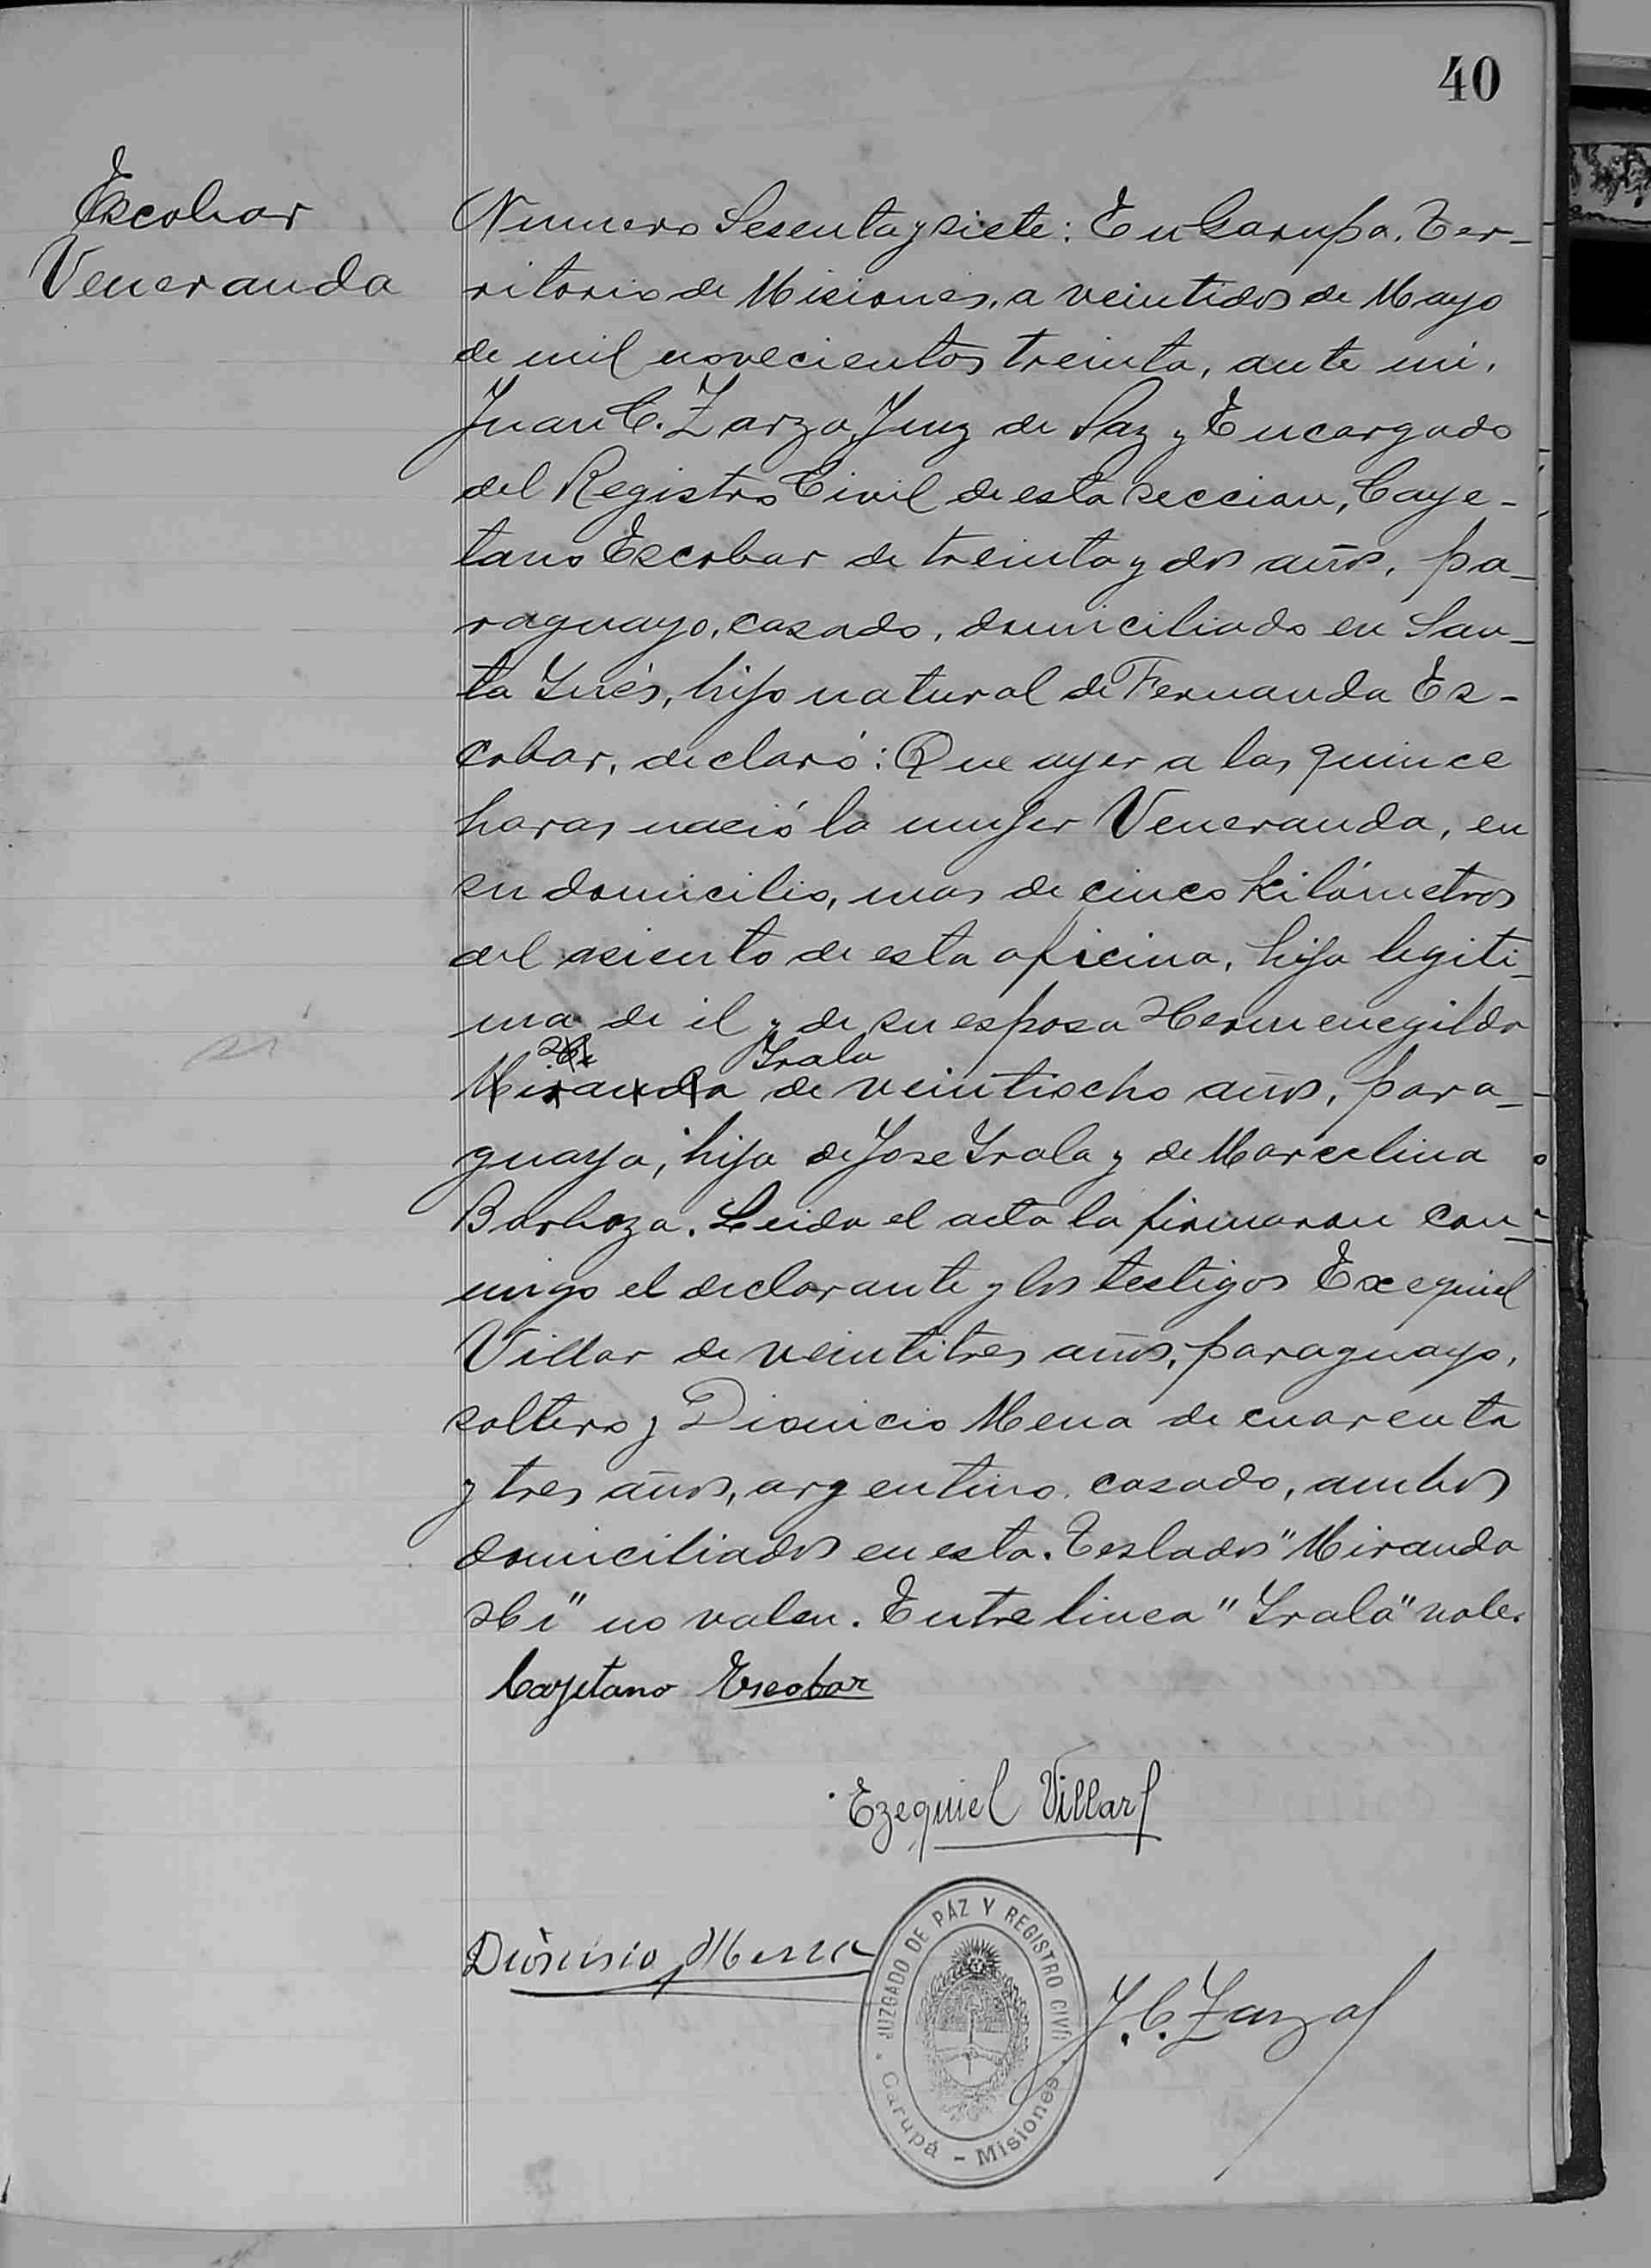 40
Escobar
Veneranda
Numero Sesenta y siete: En Garupa. Ter-
ritorio de Misiones, a veintidos de Mayo
de mil novecientos treinta, ante mi,
Juan C. Zarza, Juez de Paz y Encargado
del Registro Civil de esta seccion, Caye-
tano Escobar de treinta y dos años, pa-
raguayo, casado, domiciliado en San-
ta Inés, hijo natural de Fernanda Es-
cobar, declaró: Que ayer a las quince
horas nació la mujer Veneranda, en
su domicilio, mas de cinco kilómetros
del asiento de esta oficina, hija legiti-
ma de él y de su esposa Hermenegilda
Irala
Miranda de veintiocho años, para-
guaya, hija de Jose Irala y de Marcelina
Barboza. Leida el acta la firmaron con-
migo el declarante y los testigos Exequiel
Villar de veintitres años, paraguayo,
soltero y Dionicio Mena de cuarenta
y tres años, argentino, casado, ambos
domiciliados en esta. Testados "Miranda
Hi" no valen. Entre linea "Irala" vale.
Cayetano Escobar
Ezequiel Villar
Dionisio Mena
J. C. Zarza
JUZGADO DE PAZ Y REGISTRO CIVIL
Garupá - Misiones